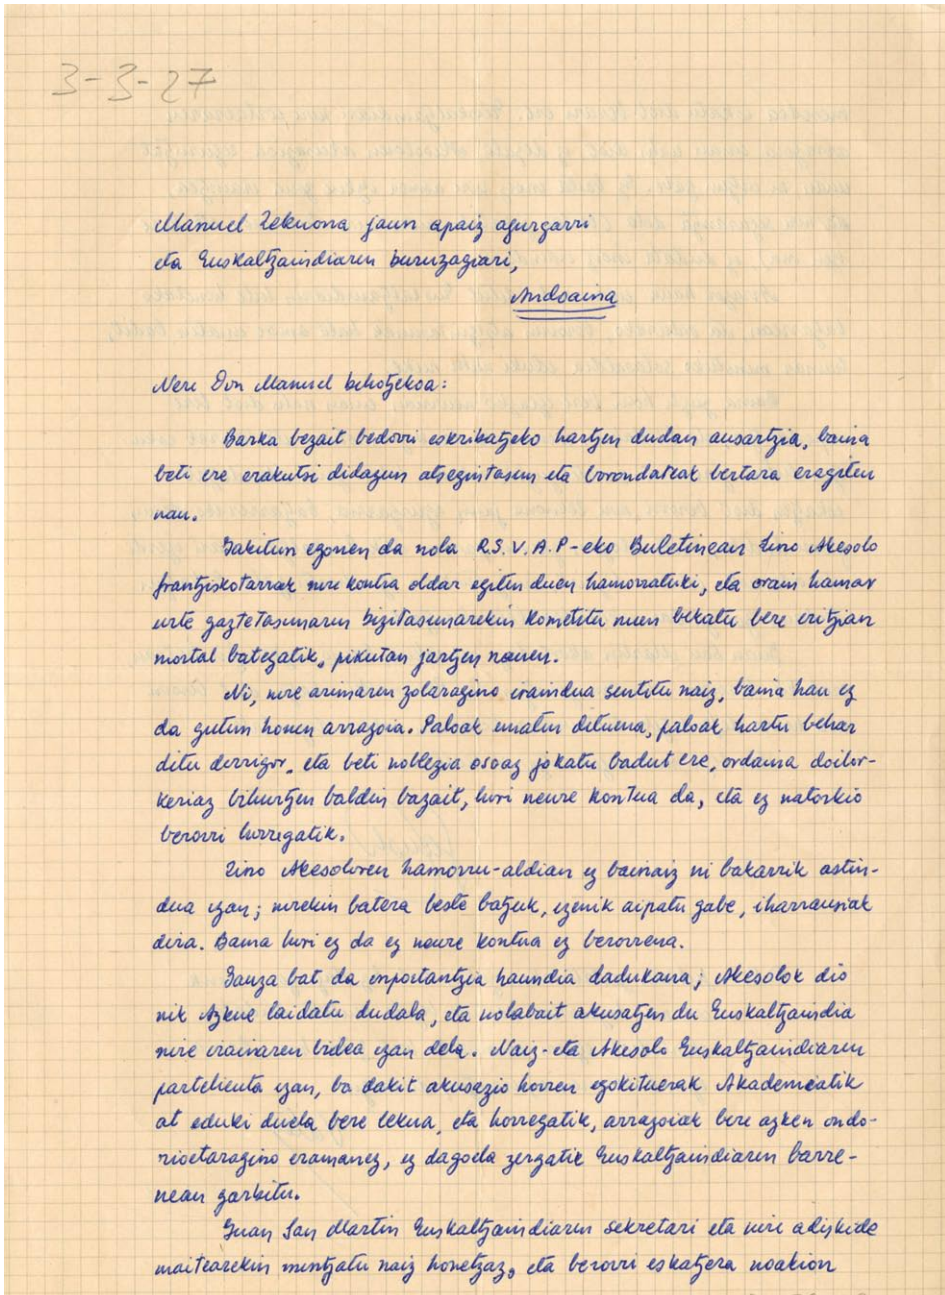 3-3-27
Manuel Lekuona jaun apaiz agurgarri
eta Euskaltzaindiaren buruzagiari,
Andoaina
Nere Don Manuel bihotzekoa:
Barka bezait bedorri eskribatzeko hartzen dudan ausartzia, baina
beti ere erakutsi didazun atsegintasun eta borondateak bertara eragiten
nau.
Jakitun egonen da nola R.S.V.A.P-eko Buletinean Lino Akesolo
frantziskotarrak nire kontra oldar egiten duen hamorratuki, eta orain hamar
urte gaztetasunaren bizitasunarekin kometitu nuen bekatu bere eritzian
mortal bategatik, pikutan jartzen nauen.
Ni, nire arimaren zolaragino iraindua sentitu naiz, baina hau ez
da gutun honen arrazoia. Paloak ematen dituena, paloak hartu behar
ditu derrigor, eta beti noblezia osoaz jokatu badut ere, ordaina doilor-
keriaz bihurtzen baldin bazait, hori neure kontua da, eta ez natorkio
berorri horregatik.
Lino Akesoloren hamorru-aldian ez bainaiz ni bakarrik astin-
dua izan; nirekin batera beste batzuk, izenik aipatu gabe, iharrausiak
dira. Baina hori ez da ez neure kontua ez berorrena.
Gauza bat da inportantzia haundia dadukana; Akesolok dio
nik Azkue laidatu dudala, eta nolabait akusatzen du Euskaltzaindia
nire irainaren bidea izan dela. Naiz-eta Akesolo Euskaltzaindiaren
partehienta izan, ba dakit akusazio horren egokituerak Akademiatik
at eduki duela bere lekua, eta horregatik, arrazoiak bere azken ondo-
rioetaragino eramanez, ez dagoela zergatik Euskaltzaindiaren barre-
nean garbitu.
Juan San Martin Euskaltzaindiaren sekretari eta nire adiskide
maitearekin mintzatu naiz honetzaz, eta berorri eskatzera noakion